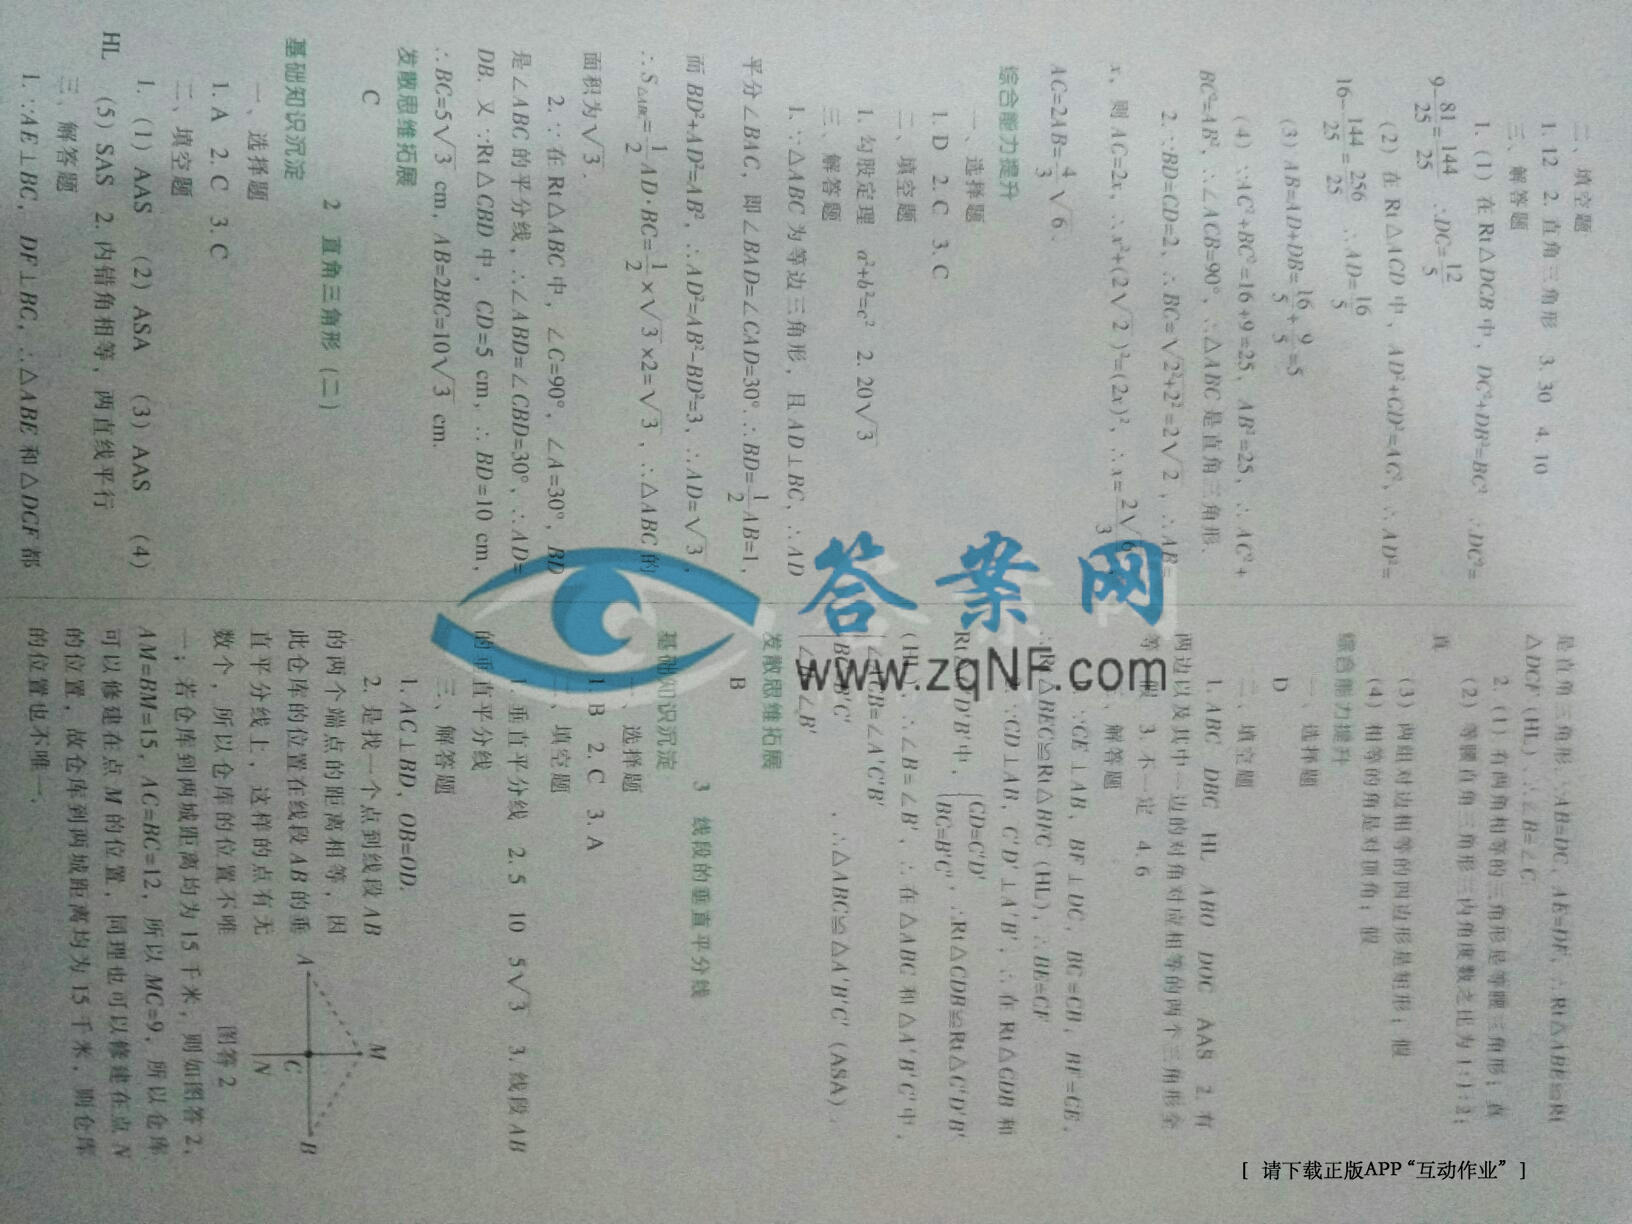 二、填空题
1. 12 2. 直角三角形 3. 30 4. 10
三、解答题
1. (1) 在 Rt△DCB 中，DC²+DB²=BC² ∴DC²=
9-81/25=144/25 ∴DC=12/5
(2) 在 Rt△ACD 中，AD²+CD²=AC²，∴AD²=
16-144/25=256/25 ∴AD=16/5
(3) AB=AD+DB=16/5+9/5=5
(4) ∵AC²+BC²=16+9=25，AB²=25，∴AC²+
BC²=AB²，∴∠ACB=90°，∴△ABC 是直角三角形.
2. ∵BD=CD=2，∴BC=√2²+2²=2√2，∴AB=
x，则 AC=2x，∴x²+(2√2)²=(2x)²，∴x=2√6/3，
AC=2AB=4/3√6.
综合能力提升
一、选择题
1. D 2. C 3. C
二、填空题
1. 勾股定理 a²+b²=c² 2. 20√3
三、解答题
1. ∵△ABC 为等边三角形，且 AD⊥BC，∴AD
平分∠BAC，即∠BAD=∠CAD=30°. ∴BD=1/2AB=1，
而 BD²+AD²=AB²，∴AD²=AB²-BD²=3，∴AD=√3，
∴S△ABC=1/2AD·BC=1/2×√3×2=√3，∴△ABC 的
面积为√3.
2. ∵在 Rt△ABC 中，∠C=90°，∠A=30°，BD
是∠ABC 的平分线，∴∠ABD=∠CBD=30°，∴AD=
DB. 又∵Rt△CBD 中，CD=5 cm，∴BD=10 cm，
∴BC=5√3 cm，AB=2BC=10√3 cm.
发散思维拓展
C
2 直角三角形（二）
基础知识沉淀
一、选择题
1. A 2. C 3. C
二、填空题
1. (1) AAS (2) ASA (3) AAS (4)
HL (5) SAS 2. 内错角相等，两直线平行
三、解答题
1. ∵AE⊥BC，DF⊥BC，∴△ABE 和△DCF 都
是直角三角形. ∵AB=DC，AE=DF，∴Rt△ABE≌Rt
△DCF (HL) ∴∠B=∠C
2. (1) 有两角相等的三角形是等腰三角形；真
(2) 等腰直角三角形三内角度数之比为 1:1:2；
真
(3) 两组对边相等的四边形是矩形；假
(4) 相等的角是对顶角；假
综合能力提升
一、选择题
D
二、填空题
1. ABC DBC HL ABO DOC AAS 2. 有
两边以及其中一边的对角对应相等的两个三角形全
等 假 3. 不一定 4. 6
解答题
∵CE⊥AB，BF⊥DC，BC=CB，BF=CE，
∴Rt△BEC≌Rt△BFC (HL)，∴BE=CF
∵CD⊥AB，C′D′⊥A′B′，∴在 Rt△CDB 和
Rt△C′D′B′中，{CD=C′D′ BC=B′C′，∴Rt△CDB≌Rt△C′D′B′
(HL)，∴∠B=∠B′，∴在△ABC 和△A′B′C′中，
{∠ACB=∠A′C′B′
BC=B′C′ ，∴△ABC≌△A′B′C′ (ASA).
∠B=∠B′
发散思维拓展
B
3 线段的垂直平分线
基础知识沉淀
一、选择题
1. B 2. C 3. A
二、填空题
1. 垂直平分线 2. 5 10 5√3 3. 线段 AB
的垂直平分线
三、解答题
1. AC⊥BD，OB=OD.
2. 是找一个点到线段 AB
的两个端点的距离相等，因
此仓库的位置在线段 AB 的垂
直平分线上，这样的点有无
数个，所以仓库的位置不唯
一；若仓库到两城距离均为 15 千米，则如图答 2，
AM=BM=15，AC=BC=12，所以 MC=9，所以仓库
可以修建在点 M 的位置，同理也可以修建在点 N
的位置，故仓库到两城距离均为 15 千米，则仓库
的位置也不唯一.
A
M
C
N
B
图答 2
答案网
www.zqNF.com
[ 请下载正版APP“互动作业” ]